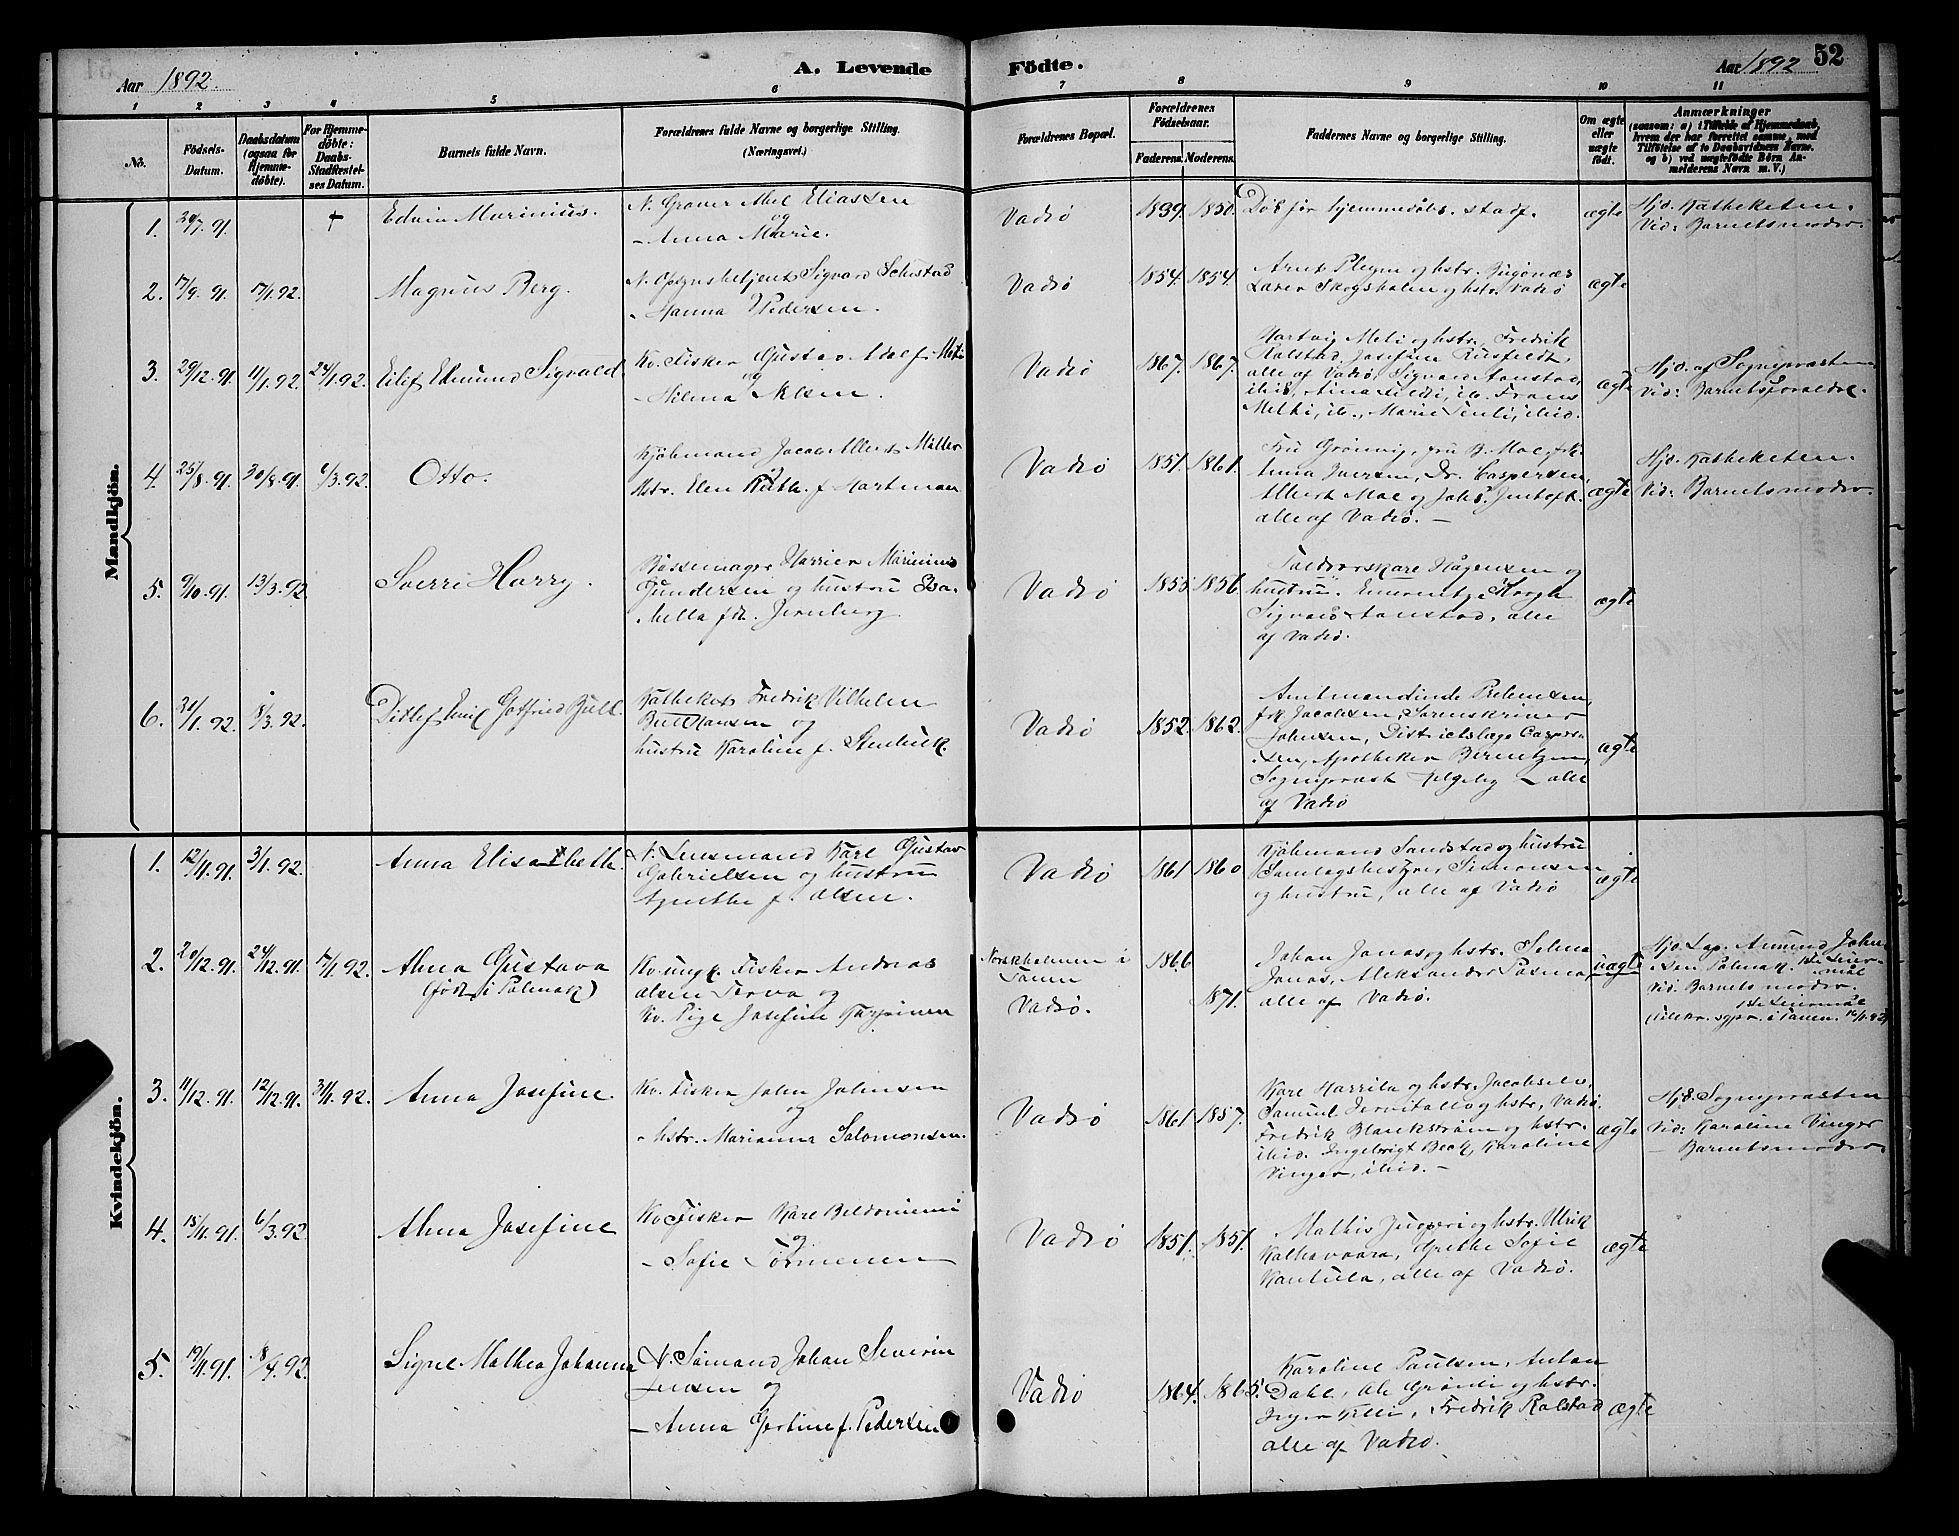 Aar 1892.
A. Levende
Födte.
Aar 1892
52
1 2 3 4 5 6 7 8 9 10 11
No.
Födsels-
Datum.
Daabsdatum
(ogsaa for
Hjemme-
döbte).
For Hjemme-
döbte:
Daabs-
Stadfæstel-
ses Datum.
Barnets fulde Navn.
Forældrenes fulde Navne og borgerlige Stilling.
(Næringsvei.)
Forældrenes Bopæl.
Forældrenes
Födselsaar.
Faderens. Moderens.
Faddernes Navne og borgerlige Stilling.
Om ægte
eller
uægte
födt.
Anmærkninger
(saasom: a) i Tilfælde af Hjemmedaab,
hvem der har forrettet samme, med
Tilföielse af to Daabsvidners Navne,
og b) ved uægtefödte Börn An-
melderens Navn m. V.)
Mandkjön.
1. 24/7.91. † Edvin Marinius.
N. Graver Mel Eliassen
og
- Anna Marie.
Vadsö 1839. 1850.
Död för hjemmedöbs. stadf.
ægte
Hjd. Katheketen.
Vid: Barnetsmoder.
2. 17/9.91. 17/1.92. Magnus Berg.
N. Opsynsbetjent Sigvard Schistad
- Hanna Pedersen.
Vadsö 1854. 1854.
Arnt Pleym og hstr. Bugönæs
Laver Skogsholm og hstr. Vadsö
ægte
3. 29/12.91. 11/1.92. 24/1.92. Eilif Edmund Sigvald
Kv. Fisker Gustav Adolf
og
- Hilma Nelsen.
Vadsö 1867. 1867.
Hartvig og hstr. Fredrik
Rolstad, Josefine
alle af Vadsö, Sigvard Aanstad,
ibid,
ibid.
ægte
Hjd. af Sognepræsten
Vid: Barnetsforældre.
4. 25/8.91. 30/8.91. 6/3.92. Otto.
Kjöbmand Jacob Albert Müller
Hstr. Elen Kath. f. Hartman
Vadsö 1851. 1861.
Fru Grönvig, fru B. Moe, frk.
Anna Iversen, Dr. Caspersen,
Albert Moe og Johs. Jentoft.
alle af Vadsö. -
ægte
Hjd. Katheketen.
Vid: Barnetsmoder.
5. 9/10.91. 13/3.92. Sverri Harry.
Bössemager Marinius
Gundersen og hustru Isa-
bella fdt. Jernberg
Vadsö 1855 1856
Toldvorskare Hågensen og
hustru. Emerentze Hough
Sigvald Aanstad, alle
af Vadsö.
ægte
6. 1.92. 8/3.92. Ditlef Emil Gotfried Bull.
Kathekets Fredrik Vilhelm
Bull Hansen og
hustru Karoline f. Stenbuk.
Vadsö 1852. 1862.
Amtmandinde Prebensen,
frk Jacobsen, Sorenskriver
Johnsen, Districtslæge Caspers-
sen, Apotheker Berentzen,
Sognepræst - alle
af Vadsö
ægte
Kvindekjön.
1. 12/11.91. 3/1.92. Anna Elisabeth.
N. Lensmand Karl Gustav
Gabrielsen og hustru
Agnethe f. Olsen.
Vadsö 1861 1860
Kjöbmand Sandstad og hustru
Samlagsbestyrer Simonsen
og hustru, alle af Vadsö
ægte
2. 20/12.91. 24/12.91. 17/1.92. Alma Gustava
(född i Polmak)
Kv. ungk. Fisker Andreas
Olsen Terva og
Kv. Pige Josefine
Norskholmen i
Tanen
Vadsö.
1866
1871.
Johan Jonas og hstr. Selma
Jonas, Aleksander
alle af Vadsö.
uægte
Hjd. Lap. Amund John-
sen Polmak. 1ste Leier-
mål
Vid. Barnets moder.
1ste Leiermål
(Tilskr. sgpr. i Tanen. 92)
3. 11/12.91. 12/12.91. 31/1.92. Anna Josefine.
Kv. Fisker John Johnsen
og
- hstr. Marianne Salomonsen.
Vadsö 1861 1857.
Karl Harrila og hstr. Jacobselv.
Samuel og hstr, Vadsö.
Fredrik Blankström og hstr.
ibid. Ingebrigt Beck, Karoline
Vinger, ibid. -
ægte
Hjd. Sognepræsten
Vid: Karoline Vinger
- Barnetsmoder
4. 15/11.91. 6/3.92. Alma Josefine
Kv. Fisker Karl Beldoniemi
og
- Sofie Törmenen
Vadsö 1851. 1851.
Mathis Juoperi og hstr. Ulrik
Kalkavaara, Grethe Sofie
Kantula, alle af Vadsö.
ægte
5. 19/11.91. 18/4.92. Signe Mathea Johanna
N. Sömand Johan Severin
Jensen og
- Anna Gertine f. Pedersen
Vadsö 1864. 1865.
Karoline Paulsen, Anton
Dahl, Ole og hstr.
Inger Fredrik Rolstad
alle af Vadsö.
ægte